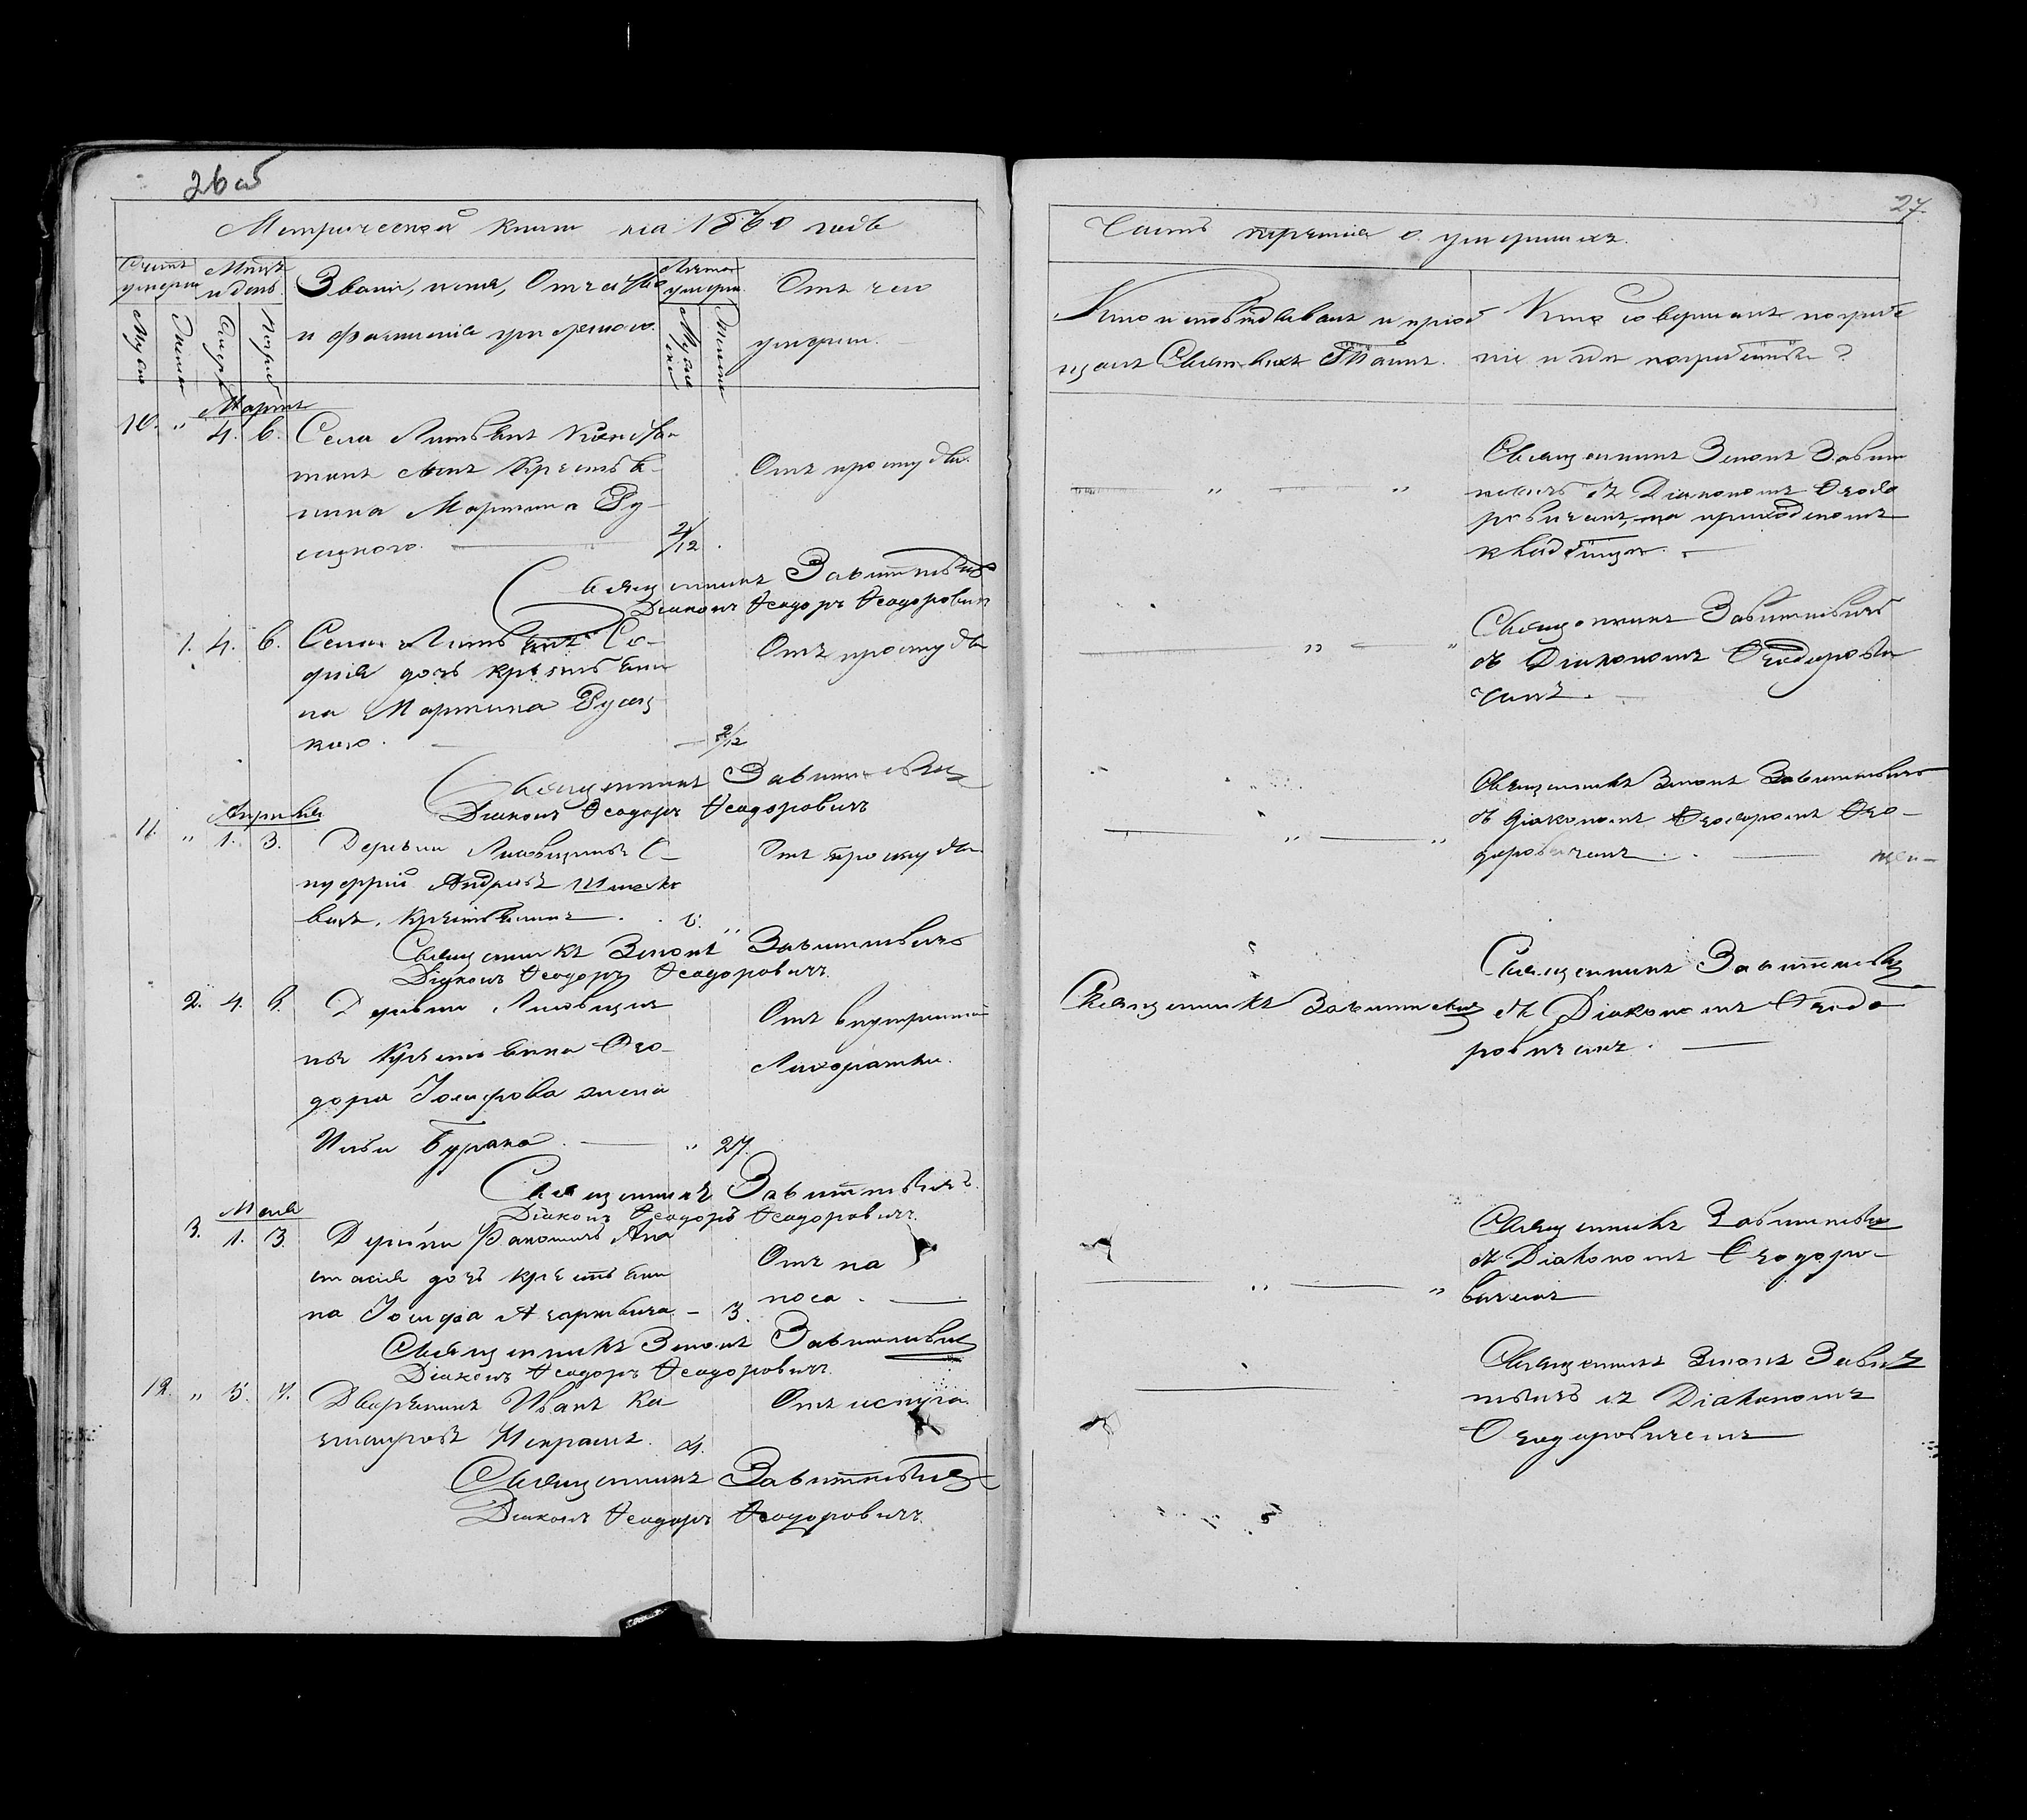 26 об
Метрической книги на 1860 годъ
Счетъ умерш
Мѣсяцъ и день
Званіе, имя, Отчество
и фамилія умершаго.
Лета умерш.
Отъ чего
умерш.
Мужск
Женск
Смерт
Погреб
Мужска
Женска
Мартъ
10. " 4. 6. Села
тинъ сынъ Крестья-
нина Мартина Ру-
сецкого. 2/12
Отъ простуды.
Священникъ Завитневичъ
Діаконъ Ѳеодоръ Ѳеодоровичъ
1. 4. 6. Села Со-
фія дочь крестьяни
на Мартина Русец
кого. 2/12
Отъ простуды
Священникъ Завитневичъ
Діаконъ Ѳеодоръ Ѳеодоровичъ
Апрѣля
11. " 1. 3. Деревни
нуфрій Андреевъ
крестьянинъ
Отъ простуды
Священникъ Зинонъ Завитневичъ
Діаконъ Ѳеодоръ Ѳеодоровичъ.
2. 4. 6. Деревни
Крестьянина Ѳео-
дора Іосифова жена
Бурака. " 27.
Отъ внутренней
Лихоратки.
Священникъ Завитневичъ
Діаконъ Ѳеодоръ Ѳеодоровичъ.
Мая
3. 1. 3. Деревни Ана
стасія дочь крестьяни
на Іосифа - 3.
Отъ па
носа.
Священникъ Зинонъ Завитневичъ
Діаконъ Ѳеодоръ Ѳеодоровичъ.
12. " 5. 7. Дворянинъ Иванъ Ка
Некрашъ. 4.
Отъ испуга.
Священникъ Завитневичъ
Діаконъ Ѳеодоръ Ѳеодоровичъ.
27.
Часть третія о умершихъ.
Кто исповѣдывалъ и пріоб
щалъ Святыхъ Таинъ.
Кто совершалъ погребе
ніе и гдѣ погребены?
Священникъ Зинонъ Завит
невичъ съ Діакономъ Ѳеодо
ровичемъ, на приходскомъ
кладбищѣ.
Священникъ Завитневичъ
съ Діакономъ Ѳеодорови
чемъ.
Священникъ Зинонъ Завитневичъ
съ Діакономъ Ѳеодоромъ Ѳео-
доровичемъ
Священникъ Завитневичъ
Священникъ Завитневичъ съ Діакономъ Ѳеодо
ровичемъ.
Священникъ Завитневичъ
съ Діакономъ Ѳеодоро-
вичемъ
Священникъ Зинонъ Завит
невичъ съ Діакономъ
Ѳеодоровичемъ